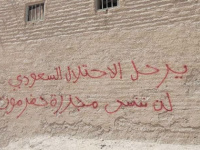 يرحل الاحتلال السعودي
لن ننسى مجزرة حفرموت